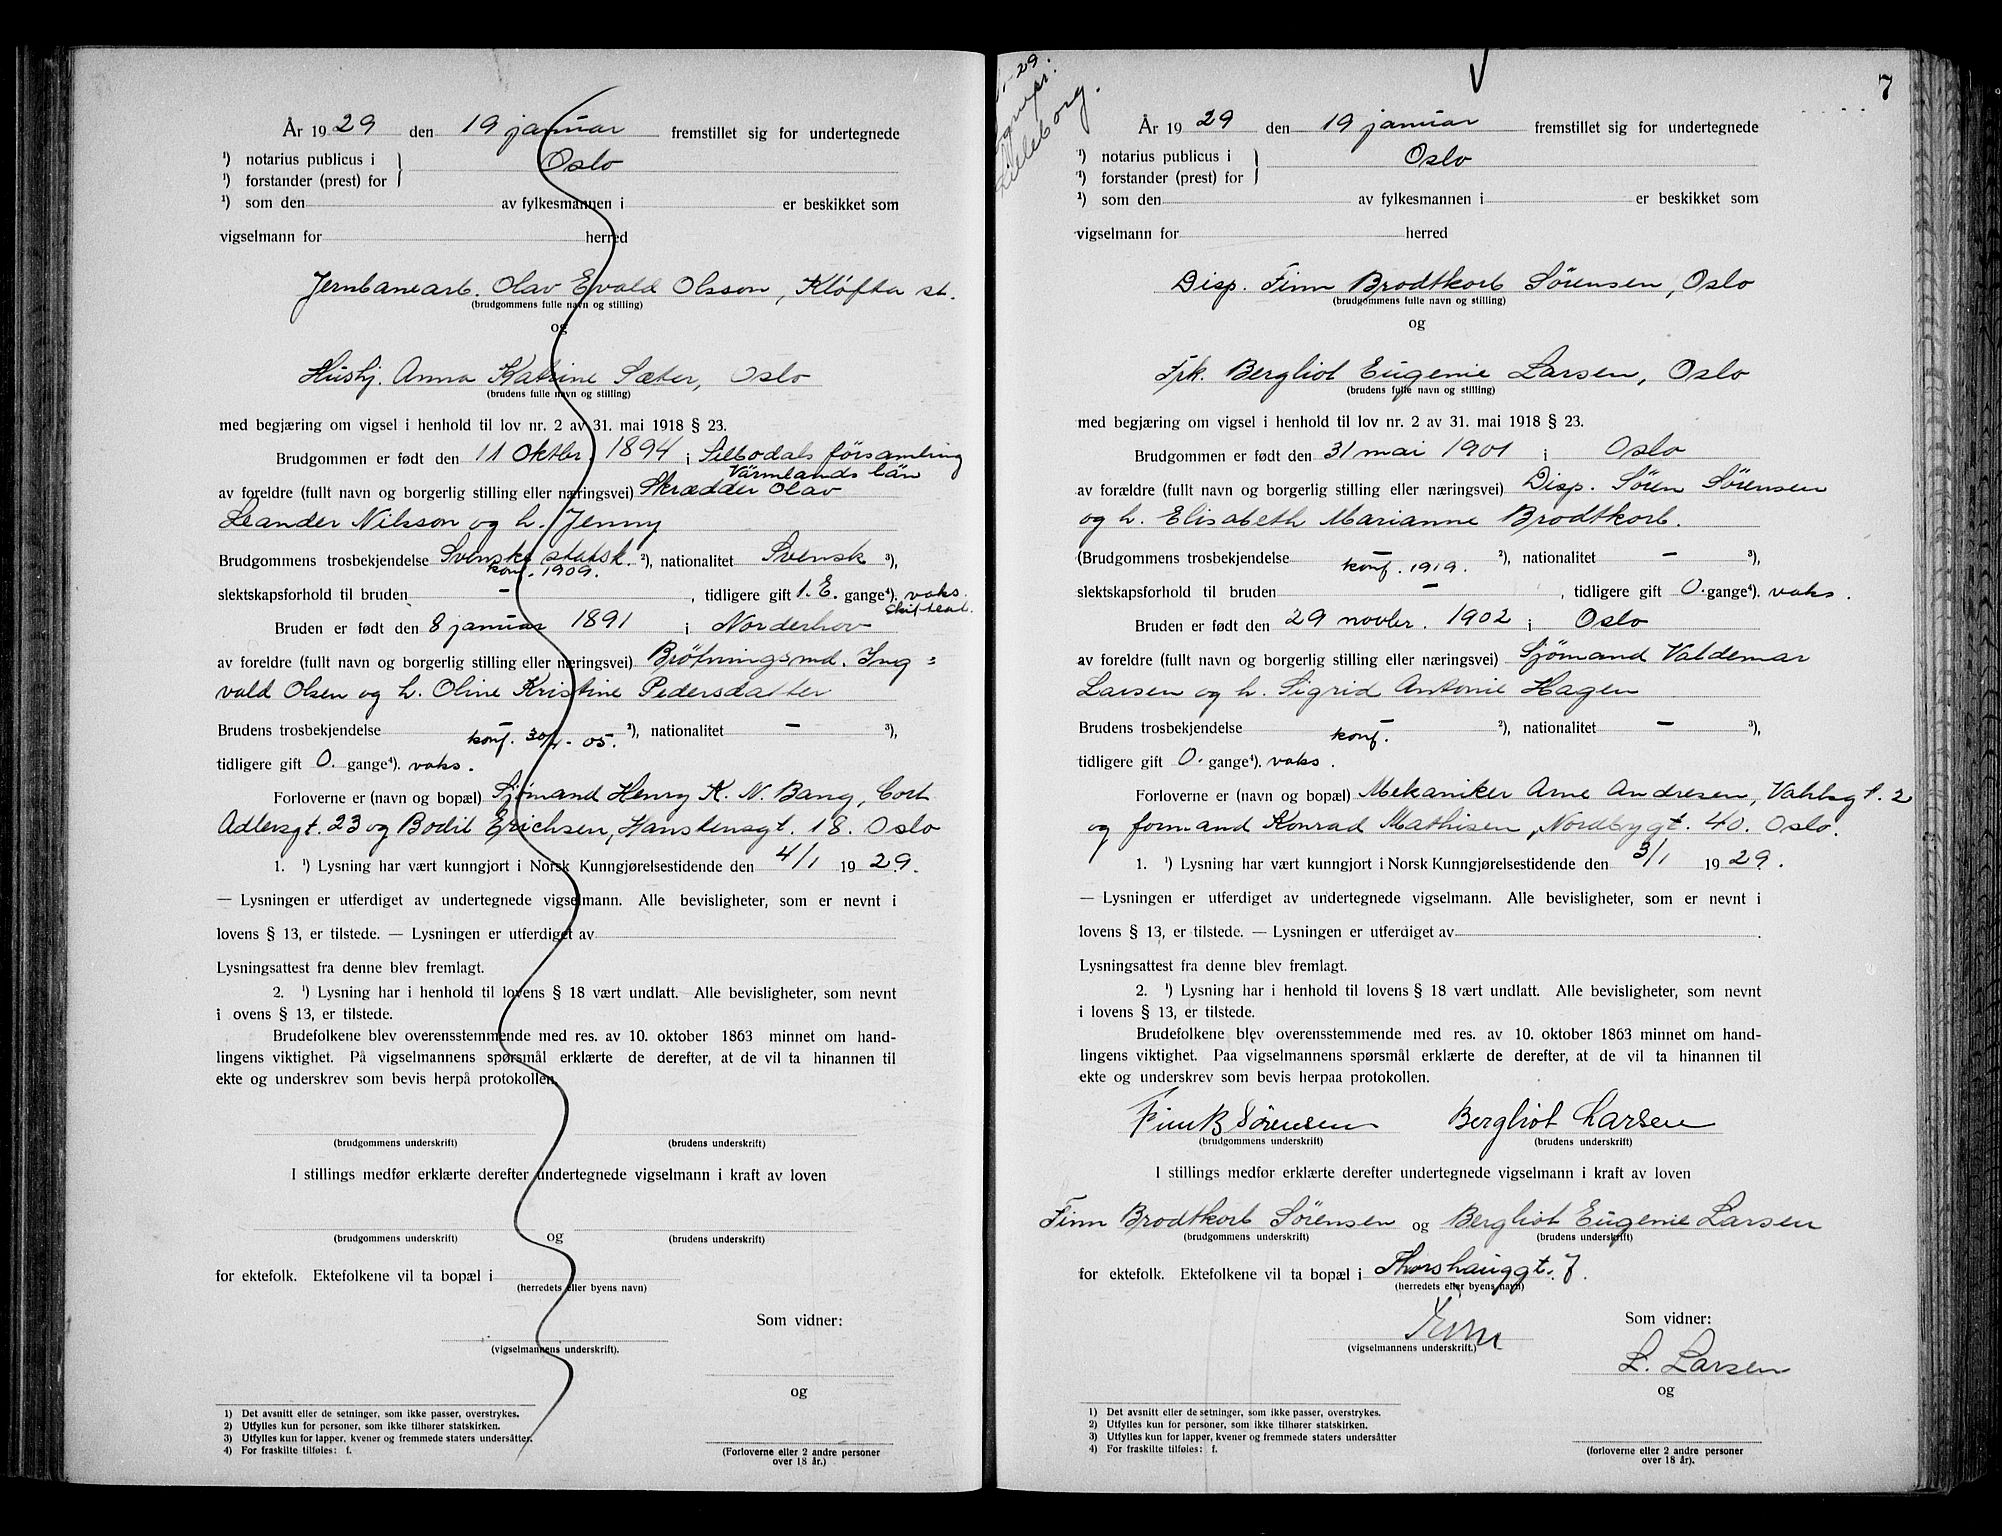 År 1929 den 19 januar fremstillet sig for undertegnede
¹) notarius publicus i } Oslo
¹) forstander (prest) for
¹) som den av fylkesmannen i er beskikket som
vigselmann for herred
Jernbanearb. Olav Evald Olsson, Kløfta st.
(brudgommens fulle navn og stilling)
og
Hushj. Anna Katrine Sæter, Oslo
(brudens fulle navn og stilling)
med begjæring om vigsel i henhold til lov nr. 2 av 31. mai 1918 § 23.
Brudgommen er født den 11 oktbr. 1894 i Silbodals församling
Värmlands län
av foreldre (fullt navn og borgerlig stilling eller næringsvei) Skrædder Olav
Leander Nilsson og h. Jenny
Brudgommens trosbekjendelse Svenske statsk. ²), nationalitet Svensk ³),
konf. 1909.
slektskapsforhold til bruden - , tidligere gift 1. E. gange⁴). vaks.
skifteat.
Bruden er født den 8 januar 1891 i Norderhov
av foreldre (fullt navn og borgerlig stilling eller næringsvei) Brøtningsmd. Ing=
vald Olsen og h. Oline Kristine Pedersdatter
Brudens trosbekjendelse - ²), nationalitet - ³),
konf. 30/4-05.
tidligere gift 0. gange⁴). vaks.
Forloverne er (navn og bopæl) Sjømand Henry K. N. Bang, Cort
Adlersgt. 23 og Bodil Erichsen, Hanstensgt. 18. Oslo
1. ¹) Lysning har vært kunngjort i Norsk Kunngjørelsestidende den 4/1 1929.
— Lysningen er utferdiget av undertegnede vigselmann. Alle bevisligheter, som er nevnt i
lovens § 13, er tilstede. — Lysningen er utferdiget av
Lysningsattest fra denne blev fremlagt.
2. ¹) Lysning har i henhold til lovens § 18 vært undlatt. Alle bevisligheter, som nevnt
i ovens § 13, er tilstede.
Brudefolkene blev overensstemmende med res. av 10. oktober 1863 minnet om hand-
lingens viktighet. På vigselmannens spørsmål erklærte de derefter, at de vil ta hinannen til
ekte og underskrev som bevis herpå protokollen.
(brudgommens underskrift) (brudens underskrift)
I stillings medfør erklærte derefter undertegnede vigselmann i kraft av loven
og
(brudgommens underskrift) (brudens underskrift)
for ektefolk. Ektefolkene vil ta bopæl i
(herredets eller byens navn)
Som vidner:
(vigselmannens underskrift).
og
1) Det avsnitt eller de setninger, som ikke passer, overstrykes.
2) Utfylles kun for personer, som ikke tilhører statskirken.
3) Utfylles kun for lapper, kvener og fremmede staters undersåtter.
4) For fraskilte tilføles: f.
(Forloverne eller 2 andre personer
over 18 år.)
29.
Lilleborg.
7
År 1929 den 19 januar fremstillet sig for undertegnede
¹) notarius publicus i } Oslo
¹) forstander (prest) for
¹) som den av fylkesmannen i er beskikket som
vigselmann for herred
Disp. Finn Brodtkorb Sørensen, Oslo
(brudgommens fulle navn og stilling)
og
Frk. Bergliot Eugenie Larsen, Oslo
(brudens fulle navn og stilling)
med begjæring om vigsel i henhold til lov nr. 2 av 31. mai 1918 § 23.
Brudgommen er født den 31 mai 1901 i Oslo
av forældre (fullt navn og borgerlig stilling eller næringsvei) Disp. Søren Sørensen
og h. Elisabeth Marianne Brodtkorb.
(Brudgommens trosbekjendelse - ²), nationalitet - ³),
konf. 1919.
slektskapsforhold til bruden - , tidligere gift 0. gange⁴). vaks.
Bruden er født den 29 novbr. 1902 i Oslo
av foreldre (fullt navn og borgerlig stilling eller næringsvei) Sjømand Valdemar
Larsen og h. Sigrid Antonie Hagen
Brudens trosbekjendelse - ²), nationalitet - ³),
konf.
tidligere gift 0. gange⁴). vaks.
Forloverne er (navn og bopæl) Mekaniker Arne Andresen, Vahlsgt. 2
og formand Konrad Mathisen, Nordbygt. 40. Oslo.
1. ¹) Lysning har vært kunngjort i Norsk Kunngjørelsestidende den 3/1 1929.
— Lysningen er utferdiget av undertegnede vigselmann. Alle bevisligheter, som er nevnt i
lovens § 13, er tilstede. — Lysningen er utferdiget av
Lysningsattest fra denne blev fremlagt.
2. ¹) Lysning har i henhold til lovens § 18 vært undlatt. Alle bevisligheter, som nevnt
i lovens § 13, er tilstede.
Brudefolkene blev overensstemmende med res. av 10. oktober 1863 minnet om hand-
lingens viktighet. Paa vigselmannens spørsmål erklærte de derefter, at de vil ta hinannen til
ekte og underskrev som bevis herpaa protokollen.
Finn B Sørensen Bergliot Larsen
(brudgommens underskrift) (brudens underskrift)
I stillings medfør erklærte derefter undertegnede vigselmann i kraft av loven
Finn Brodtkorb Sørensen og Bergliot Eugenie Larsen
(brudgommens underskrift) (brudens underskrift)
for ektefolk. Ektefolkene vil ta bopæl i Thorshauggt. 7.
(herredets eller byens navn)
Som vidner:
(vigselmannens underskrift.)
L. Larsen
og
1) Det avsnitt eller de setninger, som ikke passer, overstrykes.
2) Utfylles kun for personer, som ikke tilhører statskirken.
3) Utfylles kun for lapper, kvener og fremmede staters undersåtter
4) For fraskilte tilføles: f.
(forloverne eller 2 andre personer
over 18 år).